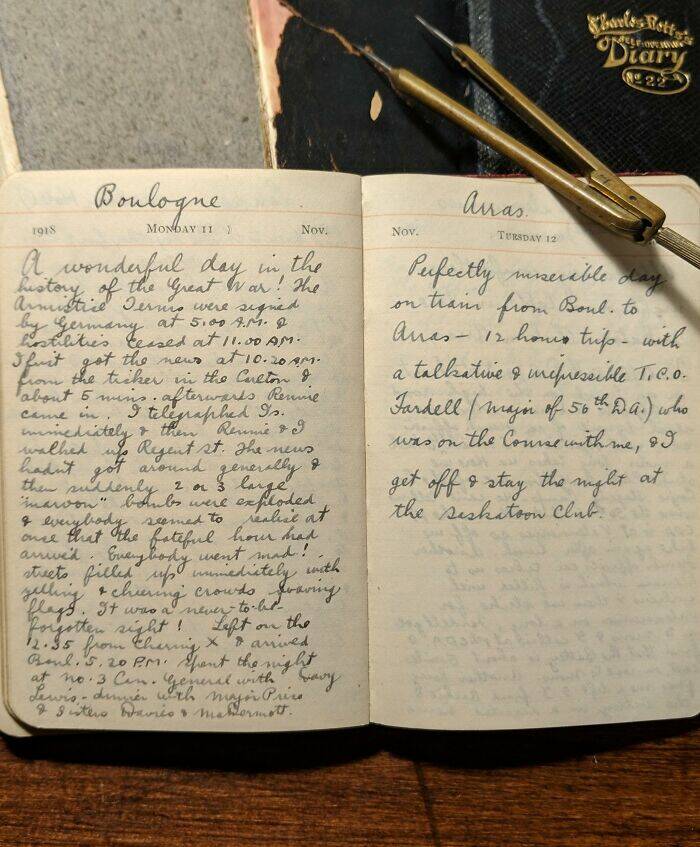 Charles Letts's
Self-opening
Diary
No 22
Boulogne
1918 MONDAY 11 Nov.
A wonderful day in the
history of the Great War! The
Armistice Terms were signed
by Germany at 5.00 A.M. &
hostilities ceased at 11.00 A.M.
I first got the news at 10.20 A.M.
from the ticker in the Carlton &
about 5 mins. afterwards Rennie
came in. I telegraphed Is.
immediately & then Rennie & I
walked up Regent St. The news
hadn't got around generally &
then suddenly 2 or 3 large
"maroon" bombs were exploded
& everybody seemed to realise at
once that the fateful hour had
arrived. Everybody went mad!
streets filled up immediately with
yelling & cheering crowds waving
flags. It was a never-to-be-
forgotten sight! Left on the
12.35 from Charing X & arrived
Boul. 5.20 P.M. spent the night
at No. 3 Can. General with
Lewis - dinner with Major Price
& Sisters Davies & McDermott.
Arras.
Nov. TUESDAY 12
Perfectly miserable day
on train from Boul. to
Arras - 12 hours trip - with
a talkative & irrepressible T.C.O.
Tardell (Major of 56th D.A.) who
was on the Course with me, & I
get off & stay the night at
the Saskatoon Club.